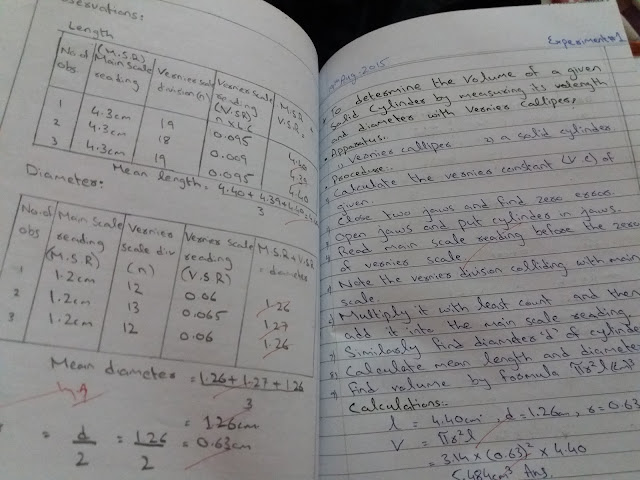 Observations:
Length
No. of obs | (M.S.R) Main scale reading | Vernier scale division (n) | Vernier scale reading (V.S.R) n x L.C | M.S.R + V.S.R
1 | 4.3cm | 19 | 0.095 | 4.40
2 | 4.3cm | 18 | 0.009 | 4.39
3 | 4.3cm | 19 | 0.095 | 4.40
Mean length = 4.40+4.39+4.40
3
Diameter:
No. of obs | Main scale reading (M.S.R) | Vernier scale div (n) | Vernier scale reading (V.S.R) | M.S.R + V.S.R = diameter
1 | 1.2cm | 12 | 0.06 | 1.26
2 | 1.2cm | 13 | 0.065 | 1.27
3 | 1.2cm | 12 | 0.06 | 1.26
Mean diameter = 1.26 + 1.27 + 1.26
3
= 1.26cm
= d/2 = 1.26/2 = 0.63cm
Experiment #1
Aug. 2015
To determine the volume of a given
solid cylinder by measuring its length
and diameter with vernier callipers,
Apparatus:
vernier callipers 2) a solid cylinder.
Procedure:
Calculate the vernier constant (V.C) of
given.
Close two jaws and find zero error.
Open jaws and put cylinder in jaws.
Read main scale reading before the zero
of vernier scale.
Note the vernier division colliding with main
scale.
Multiply it with least count and then
add it into the main scale reading.
Similarly find diameter 'd' of cylinder
Calculate mean length and diameter
find volume by formula πr²l
Calculations:-
l = 4.40cm, d = 1.26cm, r = 0.63
V = πr²l
= 3.14 x (0.63)² x 4.40
5.484cm³ Ans.